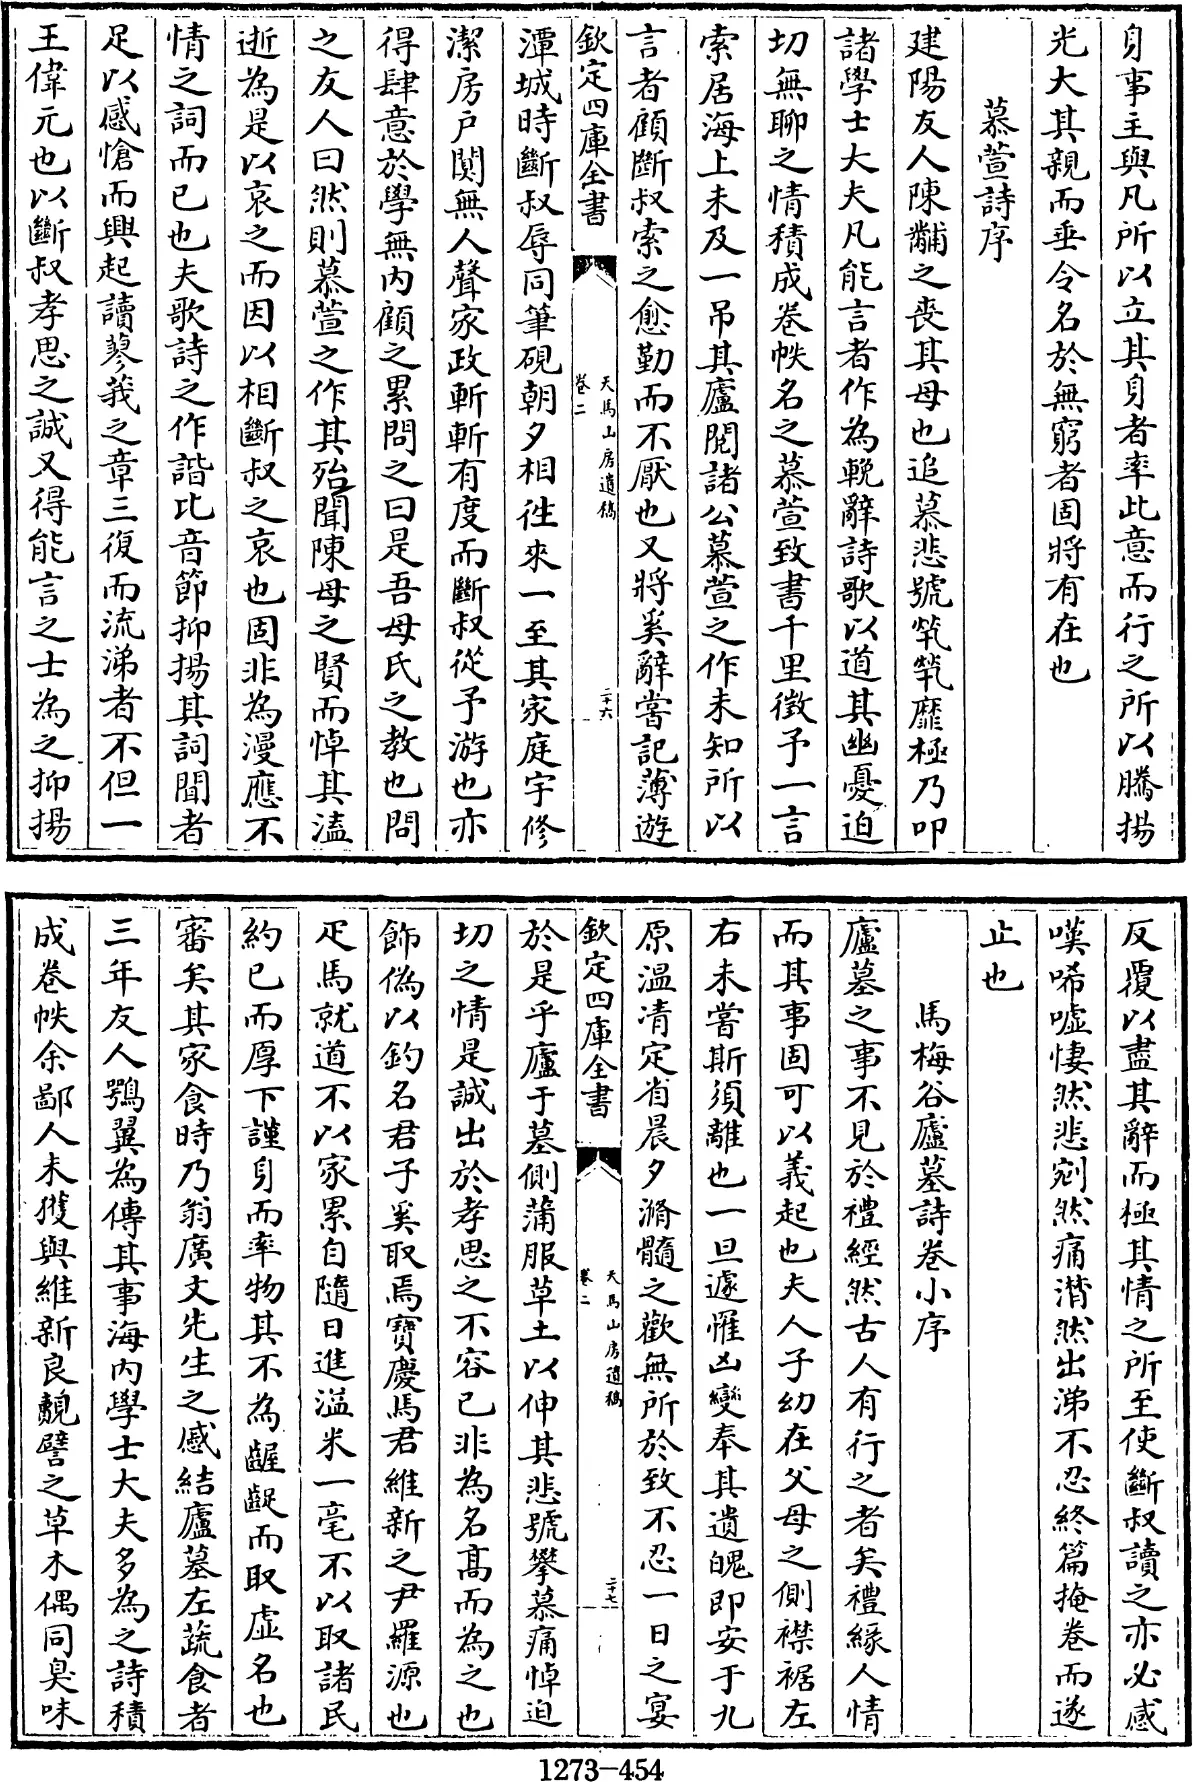 身事主與凡所以立其身者率此意而行之所以騰揚
光大其親而垂令名於無窮者固將有在也
慕萱詩序
建陽友人陳黼之喪其母也追慕悲號煢煢靡極乃叩
諸學士大夫凡能言者作為輓辭詩歌以道其幽憂迫
切無聊之情積成卷帙名之慕萱致書千里徵予一言
索居海上未及一吊其廬閱諸公慕萱之作未知所以
言者顧斷叔索之愈勤而不厭也又將奚辭嘗記薄遊
欽定四庫全書
天馬山房遺稿
卷二
二十六
潭城時斷叔辱同筆硯朝夕相徃來一至其家庭宇修
潔房户闃無人聲家政斬斬有度而斷叔從予游也亦
得肆意於學無内顧之累問之曰是吾母氏之教也問
之友人曰然則慕萱之作其殆聞陳母之賢而悼其溘
逝為是以哀之而因以相斷叔之哀也固非為漫應不
情之詞而已也夫歌詩之作諧比音節抑揚其詞聞者
足以感愴而興起讀蓼莪之章三復而流涕者不但一
王偉元也以斷叔孝思之誠又得能言之士為之抑揚
反覆以盡其辭而極其情之所至使斷叔讀之亦必感
嘆唏噓悽然悲剜然痛潸然出涕不忍終篇掩卷而遂
止也
馬梅谷廬墓詩卷小序
廬墓之事不見於禮經然古人有行之者矣禮緣人情
而其事固可以義起也夫人子幼在父母之側襟裾左
右未嘗斯須離也一旦遽罹凶變奉其遺魄即安于九
原温凊定省晨夕滫髓之歡無所於致不忍一日之宴
欽定四庫全書
天馬山房遺稿
卷二
二十七
於是乎廬于墓側蒲服草土以伸其悲號攀慕痛悼迫
切之情是誠出於孝思之不容已非為名髙而為之也
飾偽以釣名君子奚取焉寶慶馬君維新之尹羅源也
疋馬就道不以家累自隨日進溢米一毫不以取諸民
約已而厚下謹身而率物其不為齷齪而取虛名也
審矣其家食時乃翁廣文先生之感結廬墓左蔬食者
三年友人鶚翼為傳其事海内學士大夫多為之詩積
成卷帙余鄙人未獲與維新良覿譬之草木偶同臭味
1273-454